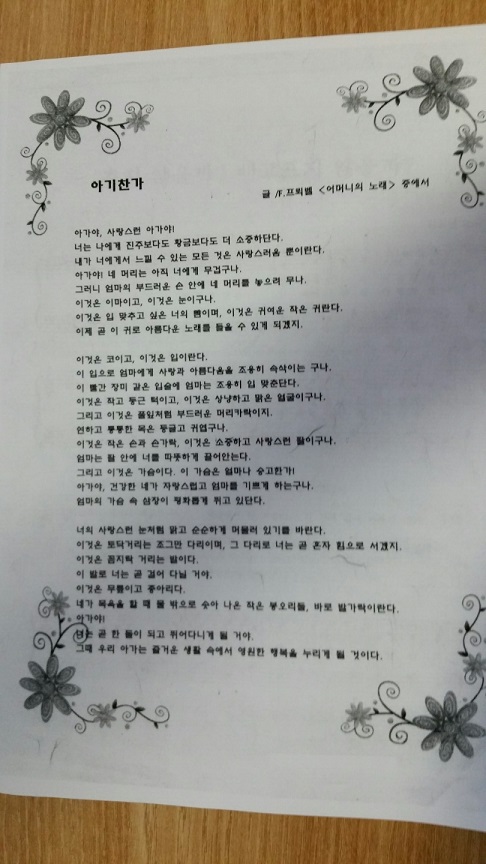 아기찬가
글 /F.프뢰벨 <어머니의 노래> 중에서
아가야, 사랑스런 아가야!
너는 나에게 진주보다도 황금보다도 더 소중하단다.
내가 너에게서 느낄 수 있는 모든 것은 사랑스러움 뿐이란다.
아가야! 네 머리는 아직 너에게 무겁구나.
그러니 엄마의 부드러운 손 안에 네 머리를 놓으려 무나.
이것은 이마이고, 이것은 눈이구나.
이것은 입 맞추고 싶은 너의 뺨이며, 이것은 귀여운 작은 귀란다.
이제 곧 이 귀로 아름다운 노래를 들을 수 있게 되겠지.
이것은 코이고, 이것은 입이란다.
이 입으로 엄마에게 사랑과 아름다움을 조용히 속삭이는 구나.
이 빨간 장미 같은 입술에 엄마는 조용히 입 맞춘단다.
이것은 작고 둥근 턱이고, 이것은 상냥하고 맑은 얼굴이구나.
그리고 이것은 풀잎처럼 부드러운 머리카락이지.
연하고 통통한 목은 둥글고 귀엽구나.
이것은 작은 손과 손가락, 이것은 소중하고 사랑스런 팔이구나.
엄마는 팔 안에 너를 따뜻하게 끌어안는다.
그리고 이것은 가슴이다. 이 가슴은 얼마나 숭고한가!
아가야, 건강한 네가 자랑스럽고 엄마를 기쁘게 하는구나.
엄마의 가슴 속 심장이 평화롭게 뛰고 있단다.
너의 사랑스런 눈처럼 맑고 순순하게 머물러 있기를 바란다.
이것은 토닥거리는 조그만 다리이며, 그 다리로 너는 곧 혼자 힘으로 서겠지.
이것은 꼼지락 거리는 발이다.
이 발로 너는 곧 걸어 다닐 거야.
이것은 무릎이고 종아리다.
네가 목욕을 할 때 물 밖으로 솟아 나온 작은 봉오리들, 바로 발가락이란다.
아가야!
너는 곧 한 돌이 되고 뛰어다니게 될 거야.
그때 우리 아가는 즐거운 생활 속에서 영원한 행복을 누리게 될 것이다.